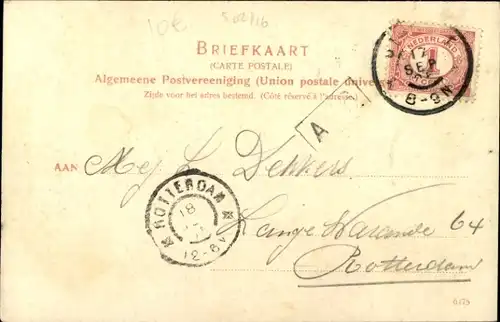 10€ 502/16
BRIEFKAART
(CARTE POSTALE)
Algemeene Postvereeniging (Union postale univer
Zijde voor het adres bestemd. (Côté réservé à l'adresse.)
NEDERLAND
1
SEP
8-9V
A
AAN Mej. L. Dekkers
ROTTERDAM
18
12-6V
Lange Warande 64
Rotterdam